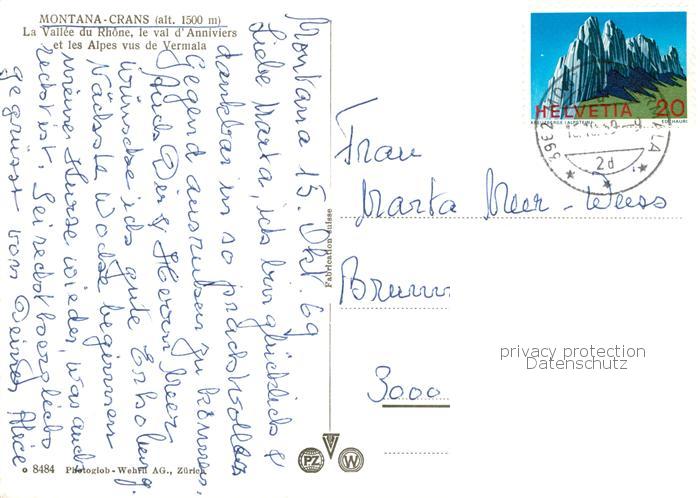 MONTANA-CRANS (alt. 1500 m)
La Vallée du Rhône, le val d'Anniviers
et les Alpes vus de Vermala
Montana 15. Okt. 69
Liebe Marta, ich bin glücklich &
dankbar in so prachtvoller
Gegend ausruhen zu können.
Auch Dir & Herrn Meer
wünsche ich gute Erholung.
Nächste Woche beginnen
meine Kurse wieder, was auch
recht ist. Sei recht herzlich
gegrüsst von Deiner Alice
o 8484 Photoglob-Wehrli AG., Zürich
Fabrication suisse
PZ W
HELVETIA 20
KREUZBERGE (ALPSTEIN)
3962
2d
Frau
Marta Meer-Weiss
3000
privacy protection
Datenschutz